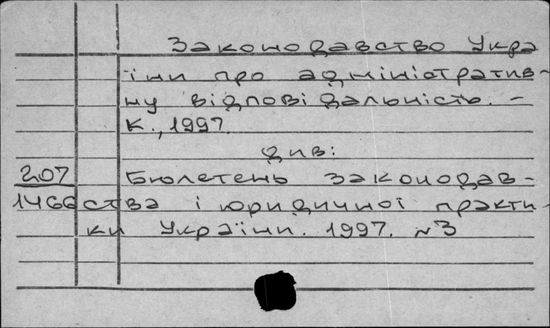 Законодавство Укра
їни про адміністратив-
ну відповідальність. -
К., 1997.
див:
207 Бюлетень законодав-
1466 ства і юридичної практи-
ки України. 1997. №3